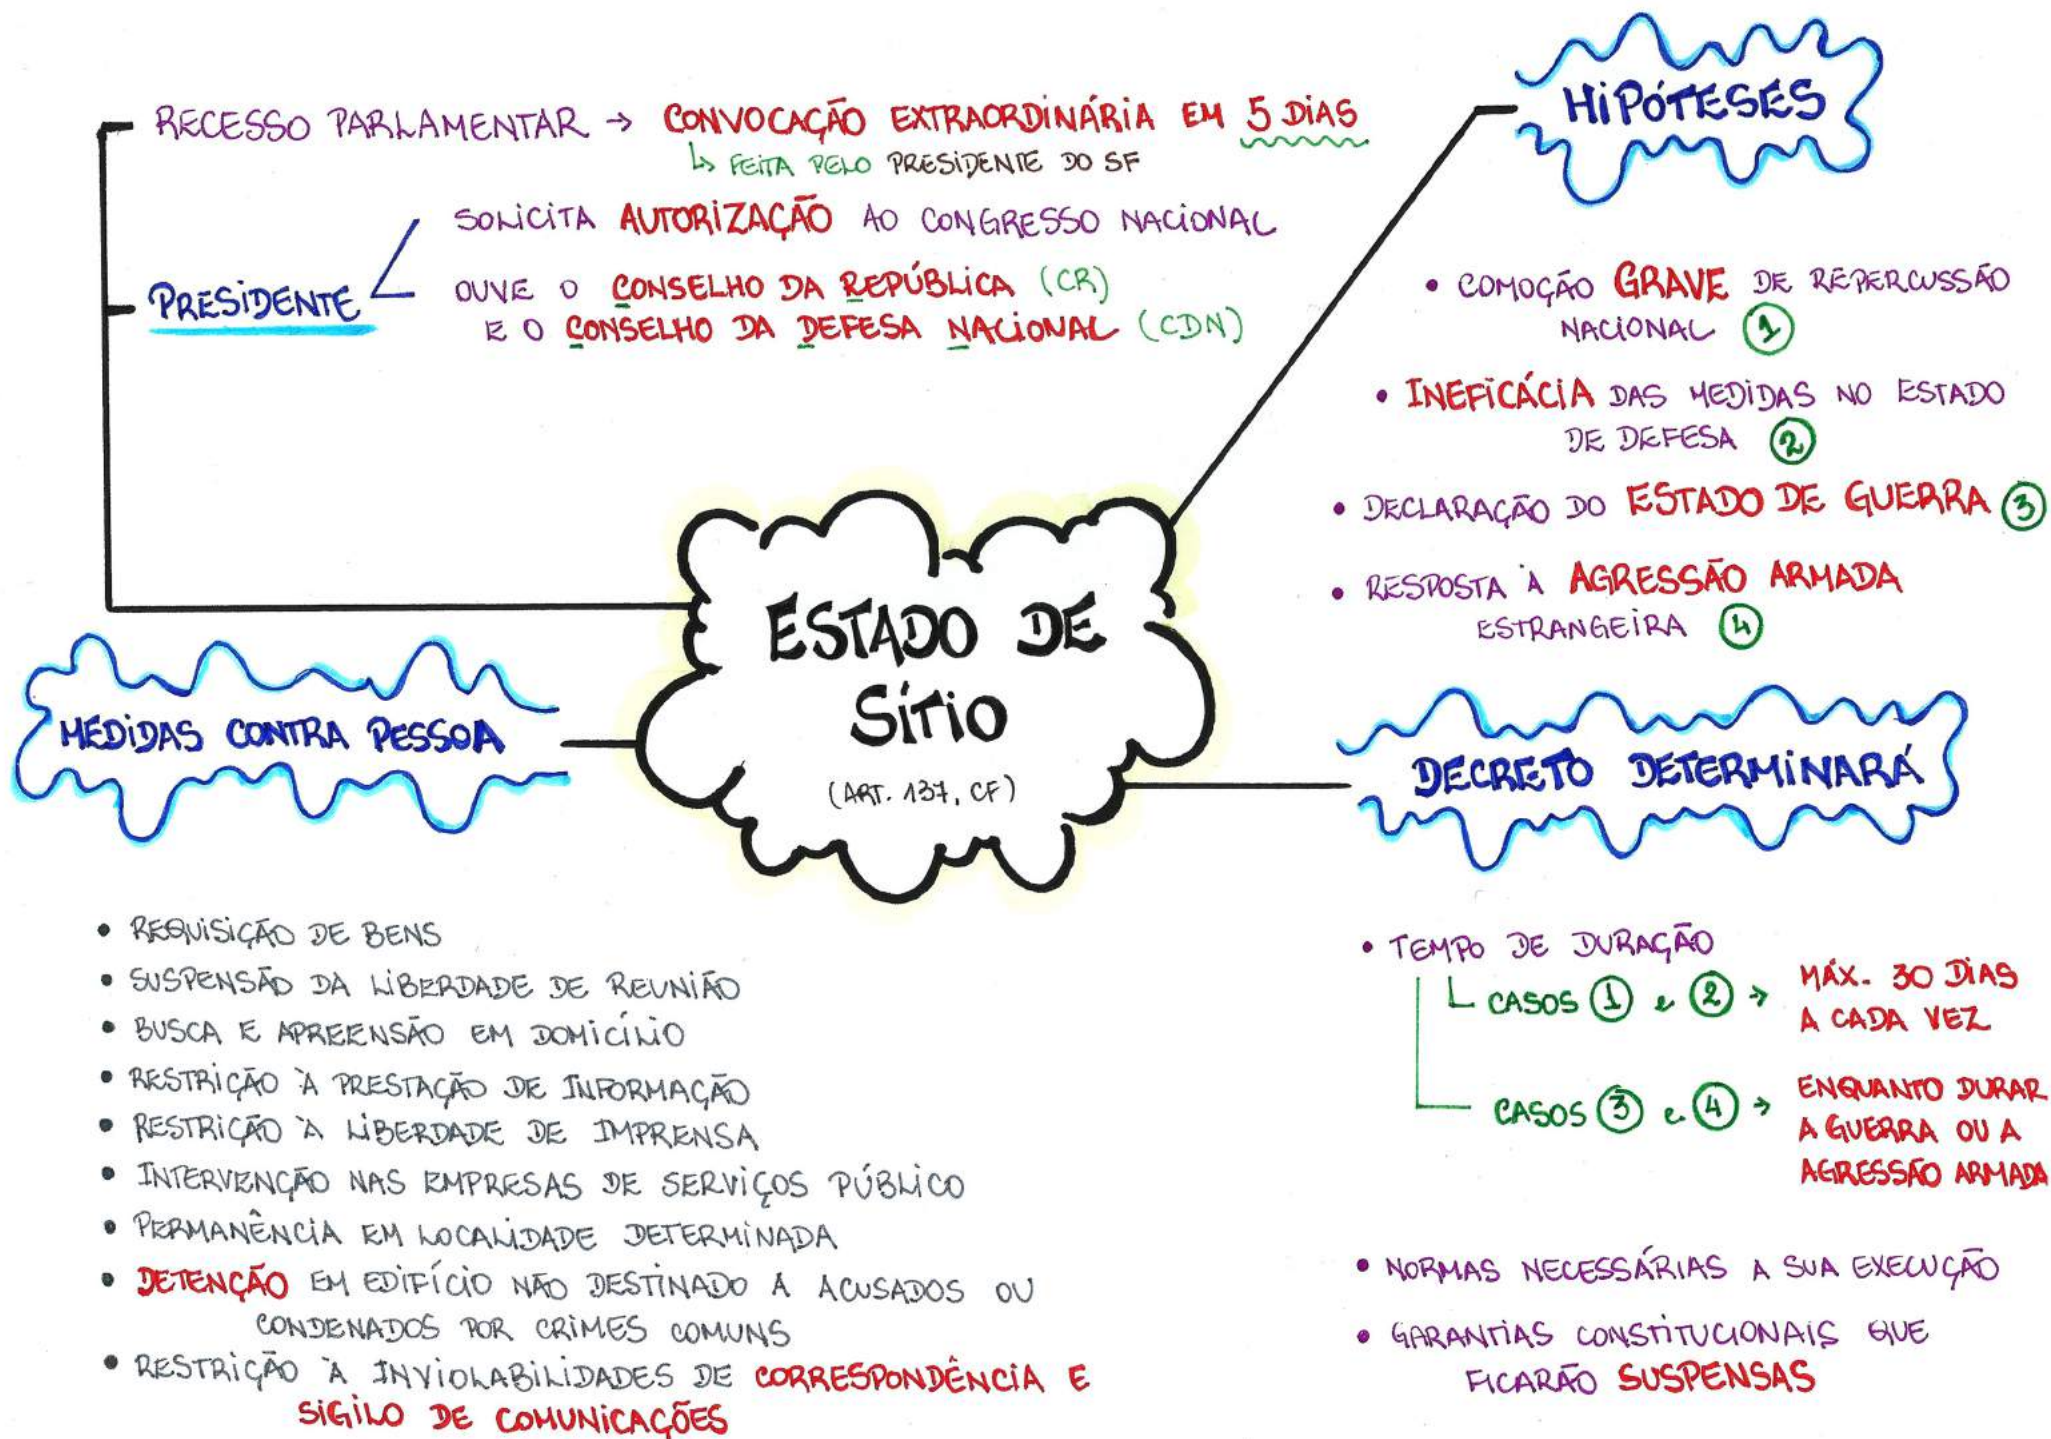 RECESSO PARLAMENTAR → CONVOCAÇÃO EXTRAORDINÁRIA EM 5 DIAS
↳ FEITA PELO PRESIDENTE DO SF
PRESIDENTE
SOLICITA AUTORIZAÇÃO AO CONGRESSO NACIONAL
OUVE O CONSELHO DA REPÚBLICA (CR)
E O CONSELHO DA DEFESA NACIONAL (CDN)
HIPÓTESES
• COMOÇÃO GRAVE DE REPERCUSSÃO
NACIONAL ①
• INEFICÁCIA DAS MEDIDAS NO ESTADO
DE DEFESA ②
• DECLARAÇÃO DO ESTADO DE GUERRA ③
• RESPOSTA À AGRESSÃO ARMADA
ESTRANGEIRA ④
ESTADO DE
SÍTIO
(ART. 137, CF)
MEDIDAS CONTRA PESSOA
• REQUISIÇÃO DE BENS
• SUSPENSÃO DA LIBERDADE DE REUNIÃO
• BUSCA E APREENSÃO EM DOMICÍLIO
• RESTRIÇÃO À PRESTAÇÃO DE INFORMAÇÃO
• RESTRIÇÃO À LIBERDADE DE IMPRENSA
• INTERVENÇÃO NAS EMPRESAS DE SERVIÇOS PÚBLICO
• PERMANÊNCIA EM LOCALIDADE DETERMINADA
• DETENÇÃO EM EDIFÍCIO NÃO DESTINADO A ACUSADOS OU
CONDENADOS POR CRIMES COMUNS
• RESTRIÇÃO À INVIOLABILIDADES DE CORRESPONDÊNCIA E
SIGILO DE COMUNICAÇÕES
DECRETO DETERMINARÁ
• TEMPO DE DURAÇÃO
CASOS ① e ② → MÁX. 30 DIAS
A CADA VEZ
CASOS ③ e ④ → ENQUANTO DURAR
A GUERRA OU A
AGRESSÃO ARMADA
• NORMAS NECESSÁRIAS A SUA EXECUÇÃO
• GARANTIAS CONSTITUCIONAIS QUE
FICARÃO SUSPENSAS